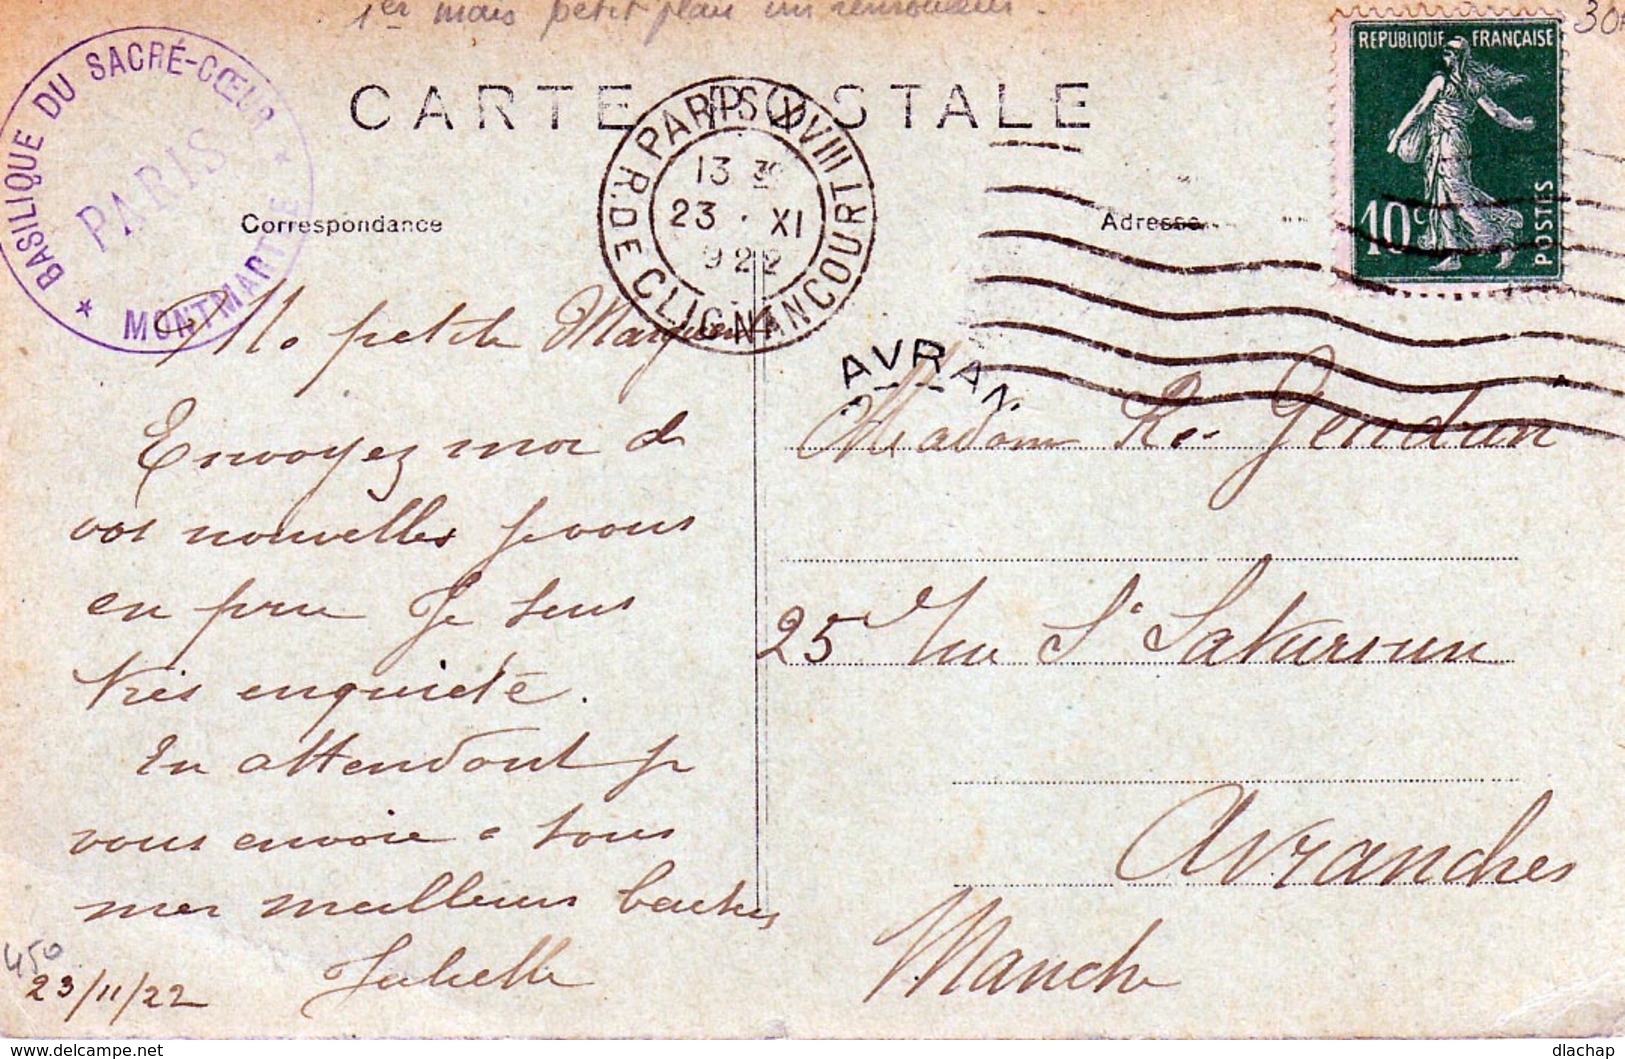 1er mais petit plan un
30
BASILIQUE DU SACRÉ-CŒUR
PARIS
MONTMARTRE
CARTE POSTALE
PARIS XVIII
R. DE CLIGNANCOURT
13 30
23 · XI
922
REPUBLIQUE FRANÇAISE
10c
POSTES
Correspondance
Adresse
AVRAN
Ma petite
Envoyez moi de
vos nouvelles je vous
en prie Je suis
très enquiete.
En attendant je
vous envoie a tous
mes meilleurs
450
23/11/22
Madame
25 Rue St Saturnin
Avranches
Manche
delcampe.net
dlachap